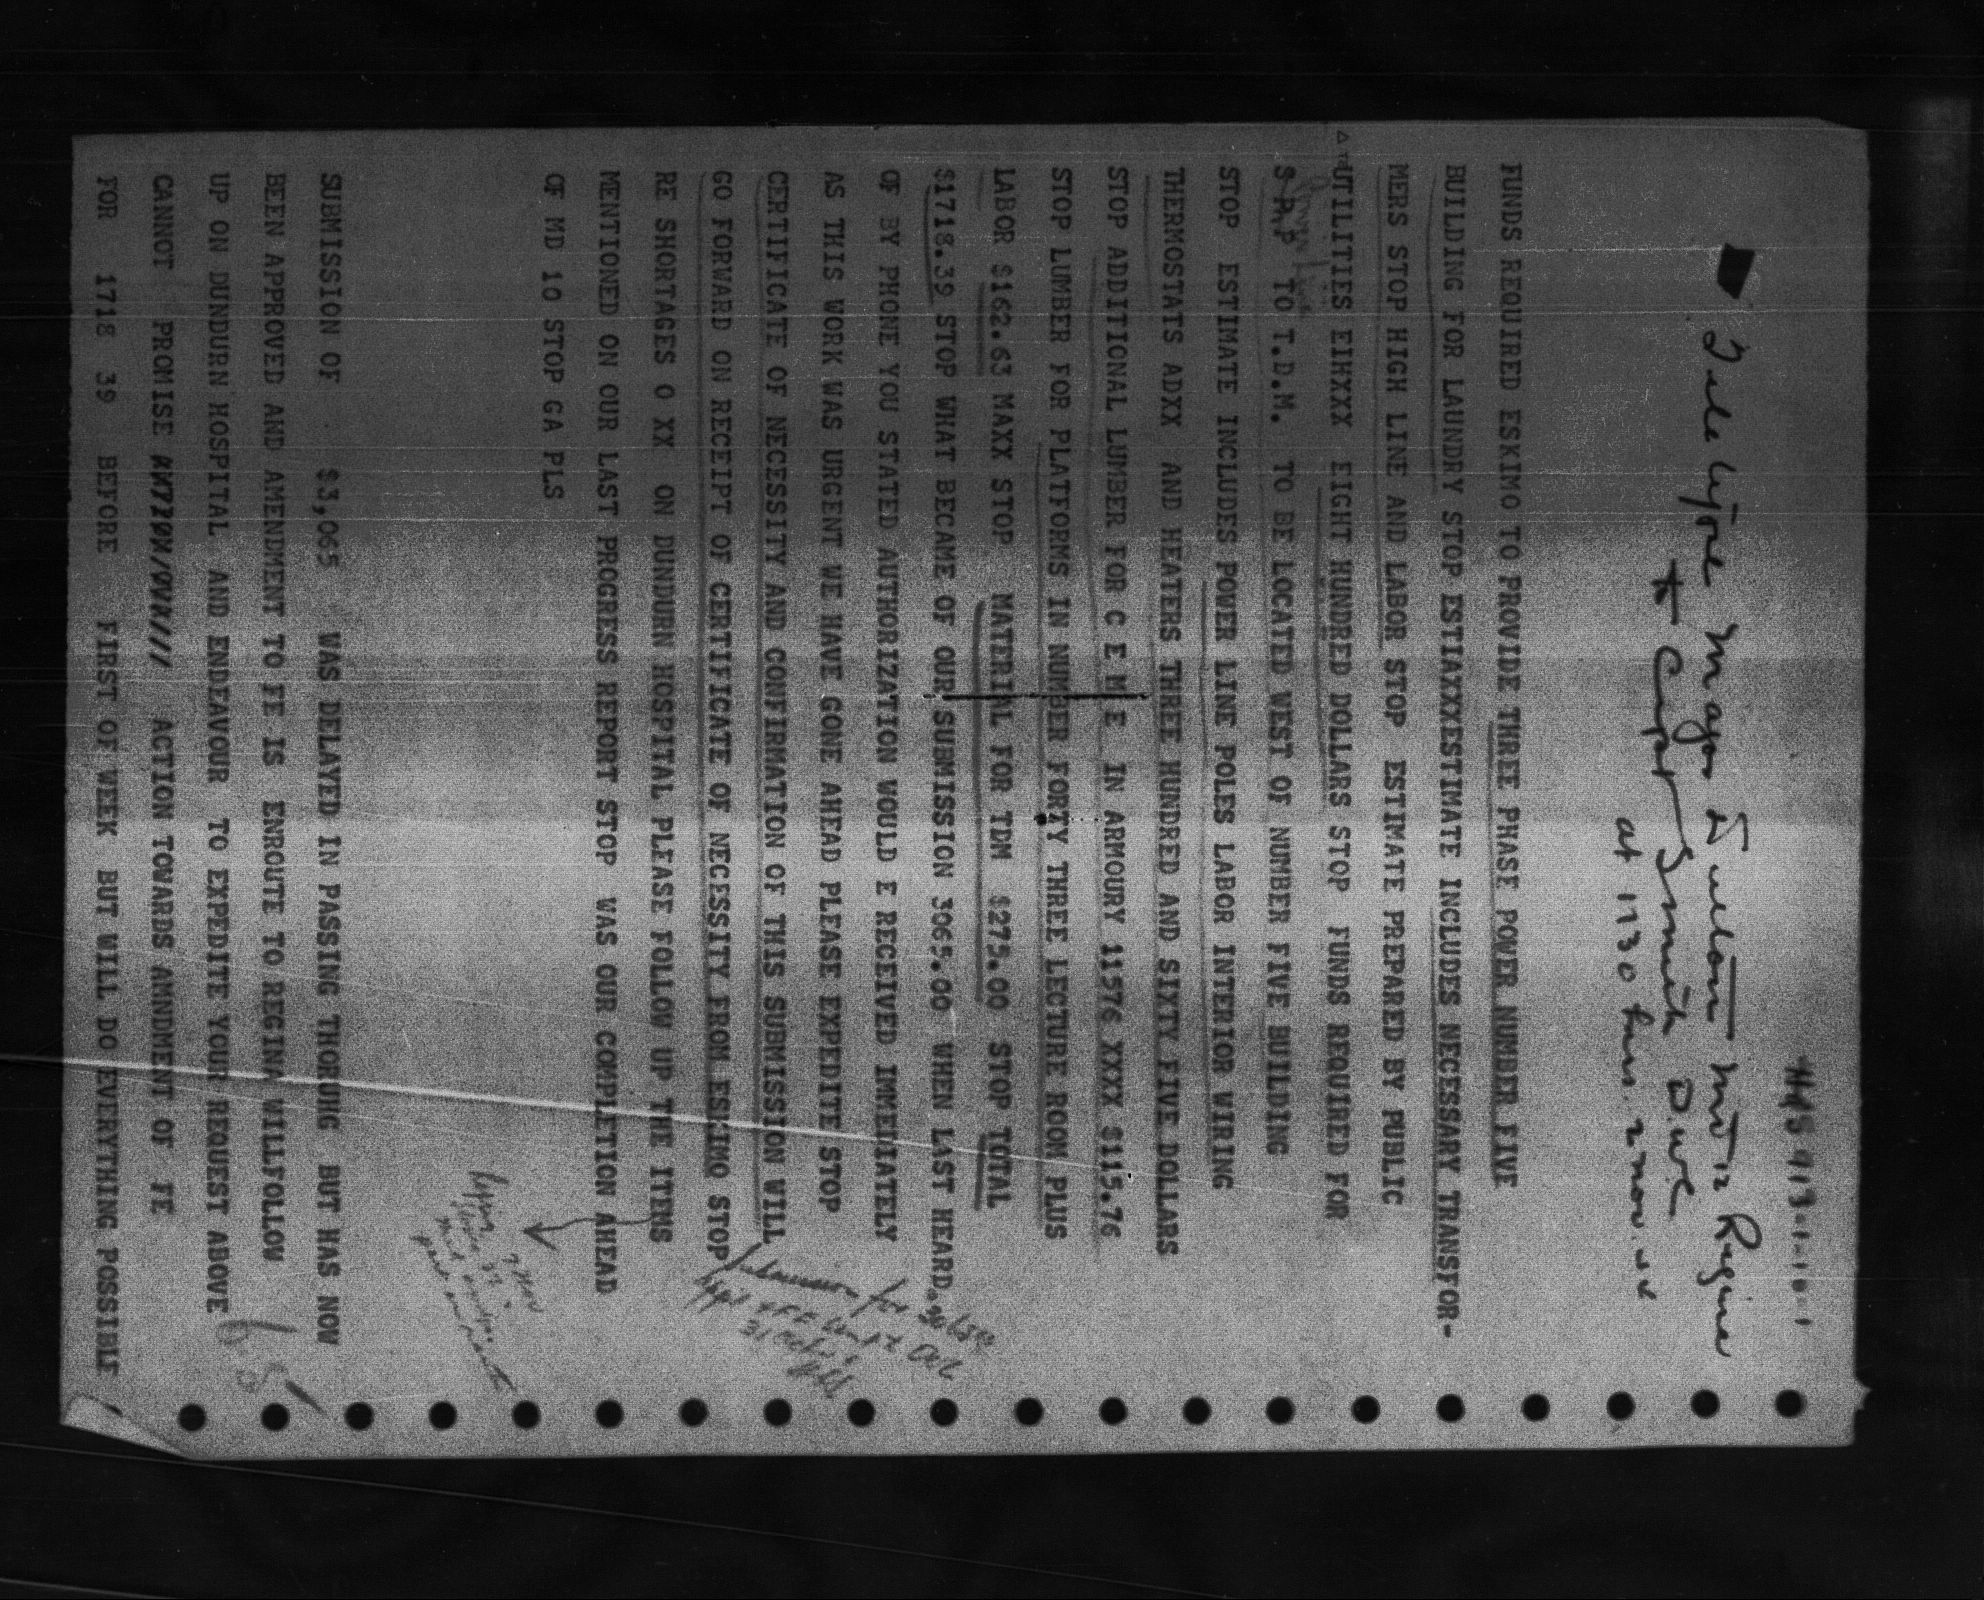 HQS 913-1-10-1
Teletype Major Dutton MD 12 Regina
+ Capt Smith D.W.C.
at 1130 hrs. 2 Nov.
FUNDS REQUIRED ESKIMO TO PROVIDE THREE PHASE POWER NUMBER FIVE
BUILDING FOR LAUNDRY STOP ESTIAXXXESTIMATE INCLUDES NECESSARY TRANSFOR-
MERS STOP HIGH LINE AND LABOR STOP ESTIMATE PREPARED BY PUBLIC
UTILITIES EIHXXX EIGHT HUNDRED DOLLARS STOP FUNDS REQUIRED FOR
TO T.D.M. TO BE LOCATED WEST OF NUMBER FIVE BUILDING
STOP ESTIMATE INCLUDES POWER LINE POLES LABOR INTERIOR WIRING
THERMOSTATS ADXX AND HEATERS THREE HUNDRED AND SIXTY FIVE DOLLARS
STOP ADDITIONAL LUMBER FOR C E M E IN ARMOURY 11576 XXXX $115.76
STOP LUMBER FOR PLATFORMS IN NUMBER FORTY THREE LECTURE ROOM PLUS
LABOR $162.63 MAXX STOP MATERIAL FOR TDM $275.00 STOP TOTAL
$1718.39 STOP WHAT BECAME OF OUR SUBMISSION 3065.00 WHEN LAST HEARD
OF BY PHONE YOU STATED AUTHORIZATION WOULD E RECEIVED IMMEDIATELY
AS THIS WORK WAS URGENT WE HAVE GONE AHEAD PLEASE EXPEDITE STOP
CERTIFICATE OF NECESSITY AND CONFIRMATION OF THIS SUBMISSION WILL
GO FORWARD ON RECEIPT OF CERTIFICATE OF NECESSITY FROM ESKIMO STOP
RE SHORTAGES O XX ON DUNDURN HOSPITAL PLEASE FOLLOW UP THE ITEMS
MENTIONED ON OUR LAST PROGRESS REPORT STOP WAS OUR COMPLETION AHEAD
OF MD 10 STOP GA PLS
SUBMISSION OF $3,065 WAS DELAYED IN PASSING THORUG BUT HAS NOW
BEEN APPROVED AND AMENDMENT TO FE IS ENROUTE TO REGINA WILLFOLLOW
UP ON DUNDURN HOSPITAL AND ENDEAVOUR TO EXPEDITE YOUR REQUEST ABOVE
CANNOT PROMISE ACTION TOWARDS AMNDMENT OF FE
FOR 1718 39 BEFORE FIRST OF WEEK BUT WILL DO EVERYTHING POSSIBLE